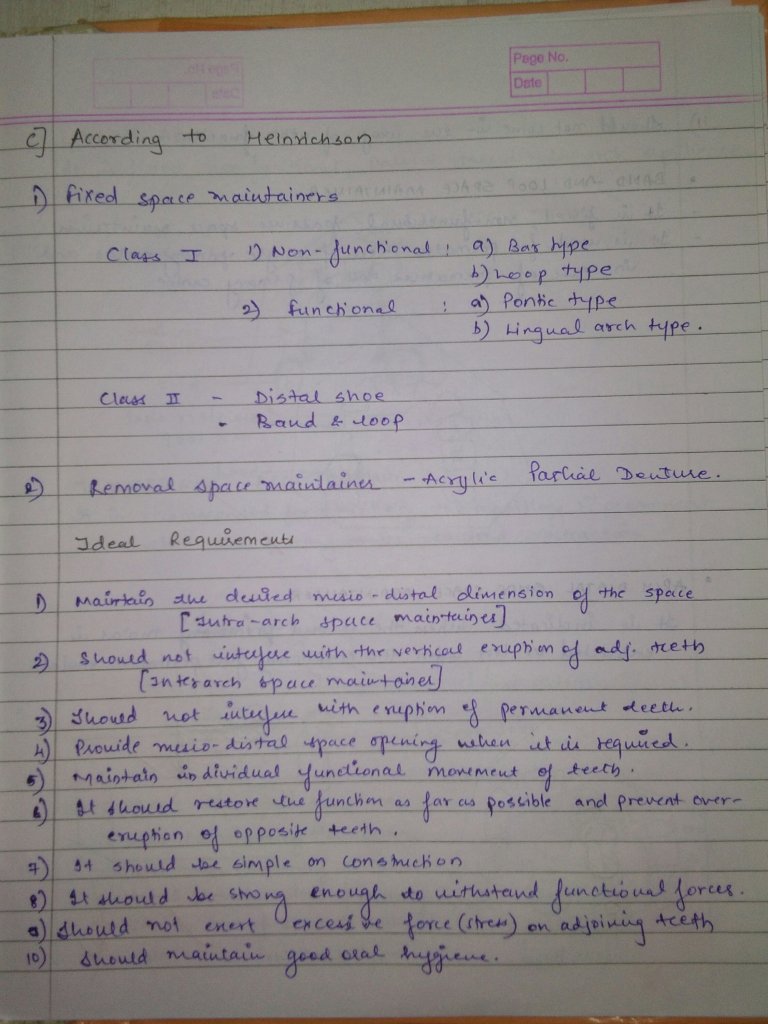 Page No.
Date
C] According to Heinrichson
1) Fixed space maintainers
Class I 1) Non-functional : a) Bar type
b) Loop type
2) functional : a) Pontic type
b) Lingual arch type.
Class II - Distal shoe
- Band & loop
2) Removal space maintainer - Acrylic Partial Denture.
Ideal Requirements
1) Maintain the desired mesio-distal dimension of the space
[Intra-arch space maintainer]
2) Should not interfere with the vertical eruption of adj. teeth
[Interarch space maintainer]
3) Should not interfere with eruption of permanent teeth.
4) Provide mesio-distal space opening when it is required.
5) Maintain individual functional movement of teeth.
6) It should restore the function as far as possible and prevent over-
eruption of opposite teeth.
7) It should be simple on construction
8) It should be strong enough to withstand functional forces.
9) Should not exert excessive force (stress) on adjoining teeth
10) Should maintain good oral hygiene.